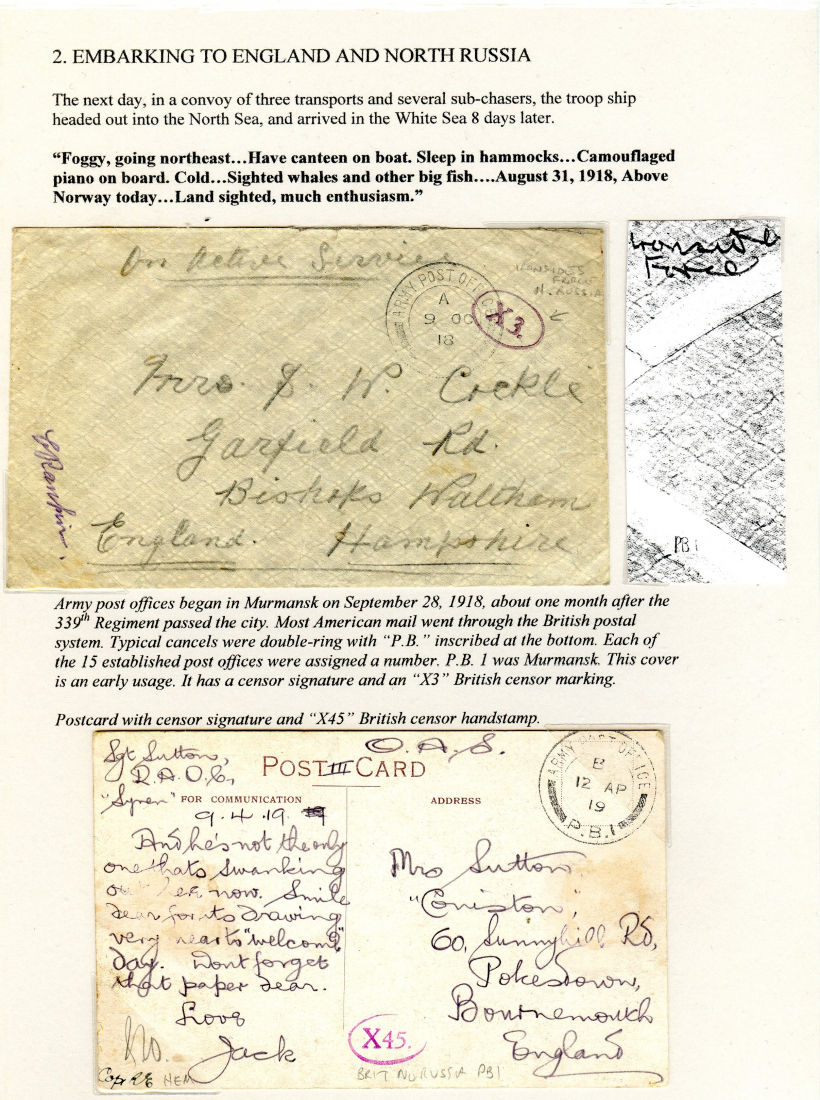 2. EMBARKING TO ENGLAND AND NORTH RUSSIA
The next day, in a convoy of three transports and several sub-chasers, the troop ship
headed out into the North Sea, and arrived in the White Sea 8 days later.
“Foggy, going northeast…Have canteen on boat. Sleep in hammocks…Camouflaged
piano on board. Cold…Sighted whales and other big fish….August 31, 1918, Above
Norway today…Land sighted, much enthusiasm.”
On Active Service
ARMY POST OFFICE
A
9 OC
18
X3.
IRONSIDES
FORCE
N. RUSSIA
Mrs. J. W. Cockle
Garfield Rd.
Bishops Waltham
England. Hampshire
Ironside
Force
PB1
Army post offices began in Murmansk on September 28, 1918, about one month after the
339th Regiment passed the city. Most American mail went through the British postal
system. Typical cancels were double-ring with “P.B.” inscribed at the bottom. Each of
the 15 established post offices were assigned a number. P.B. 1 was Murmansk. This cover
is an early usage. It has a censor signature and an “X3” British censor marking.
Postcard with censor signature and “X45” British censor handstamp.
Sgt Sutton,
R.A.O.C,
"Syren"
O.A.S.
POST CARD
FOR COMMUNICATION
ADDRESS
ARMY POST OFFICE
B
12 AP
19
P.B.1
9.4.19
And he's not the only
one thats swanking
out here now. Smile
dear for its drawing
very near to "welcome"
day. Dont forget
that paper dear.
Love
Jack
Mrs Sutton,
"Coniston",
60, Sunnyhill Rd,
Pokesdown,
Bournemouth
England
X45.
Capt RE
HEM
BRIT NO RUSSIA PB1